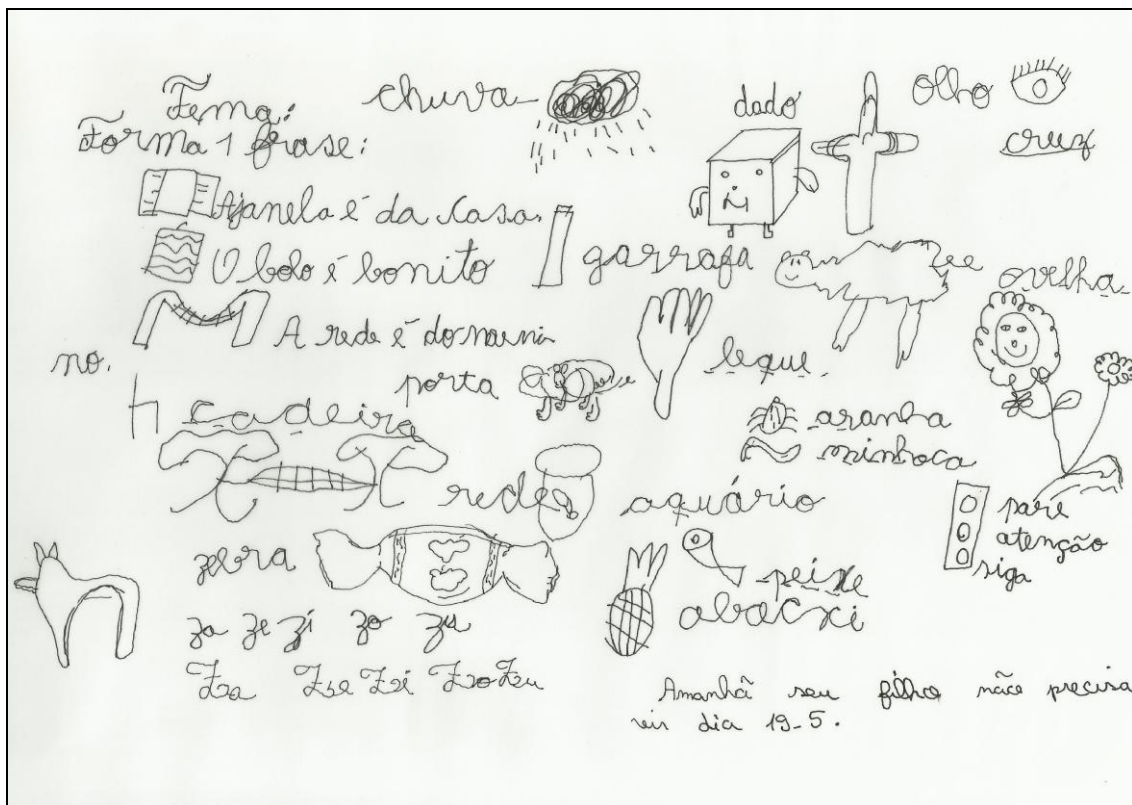 Tema:
chuva
dado
olho
cruz
Forma 1 frase:
A janela é da casa.
O bolo é bonito
garrafa
ovelha
A rede é do marni
no.
porta
leque
cadeira
aranha
minhoca
rede
aquário
pare
atenção
siga
zebra
peixe
abacxi
za ze zi zo zu
Zza Zze Zzi Zzo Zzu
Amanhã seu filho nãoe precisa
vir dia 19-5.